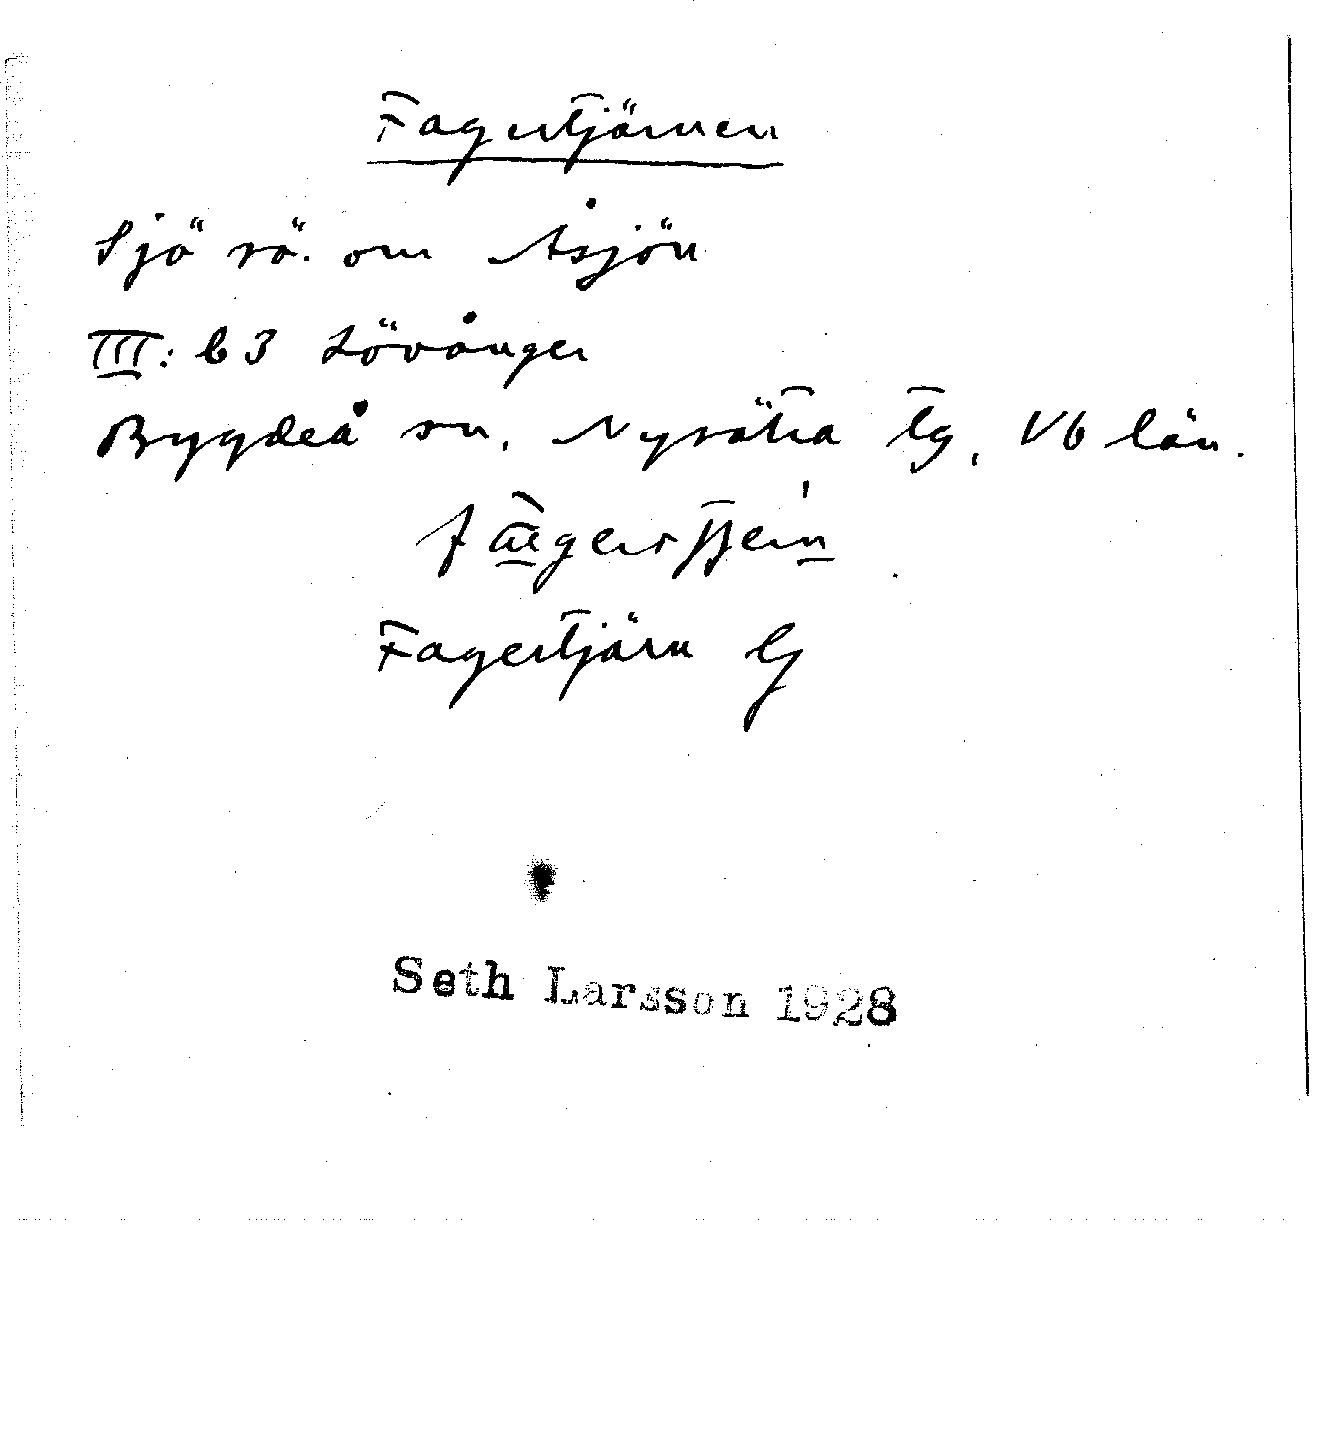 Fagertjärnen
Sjö sö. om Åsjön
III: b3 Lövånger
Bygdeå sn, Nysätra tg, Vb län.
Fagertjärn G
Seth Larsson 1928